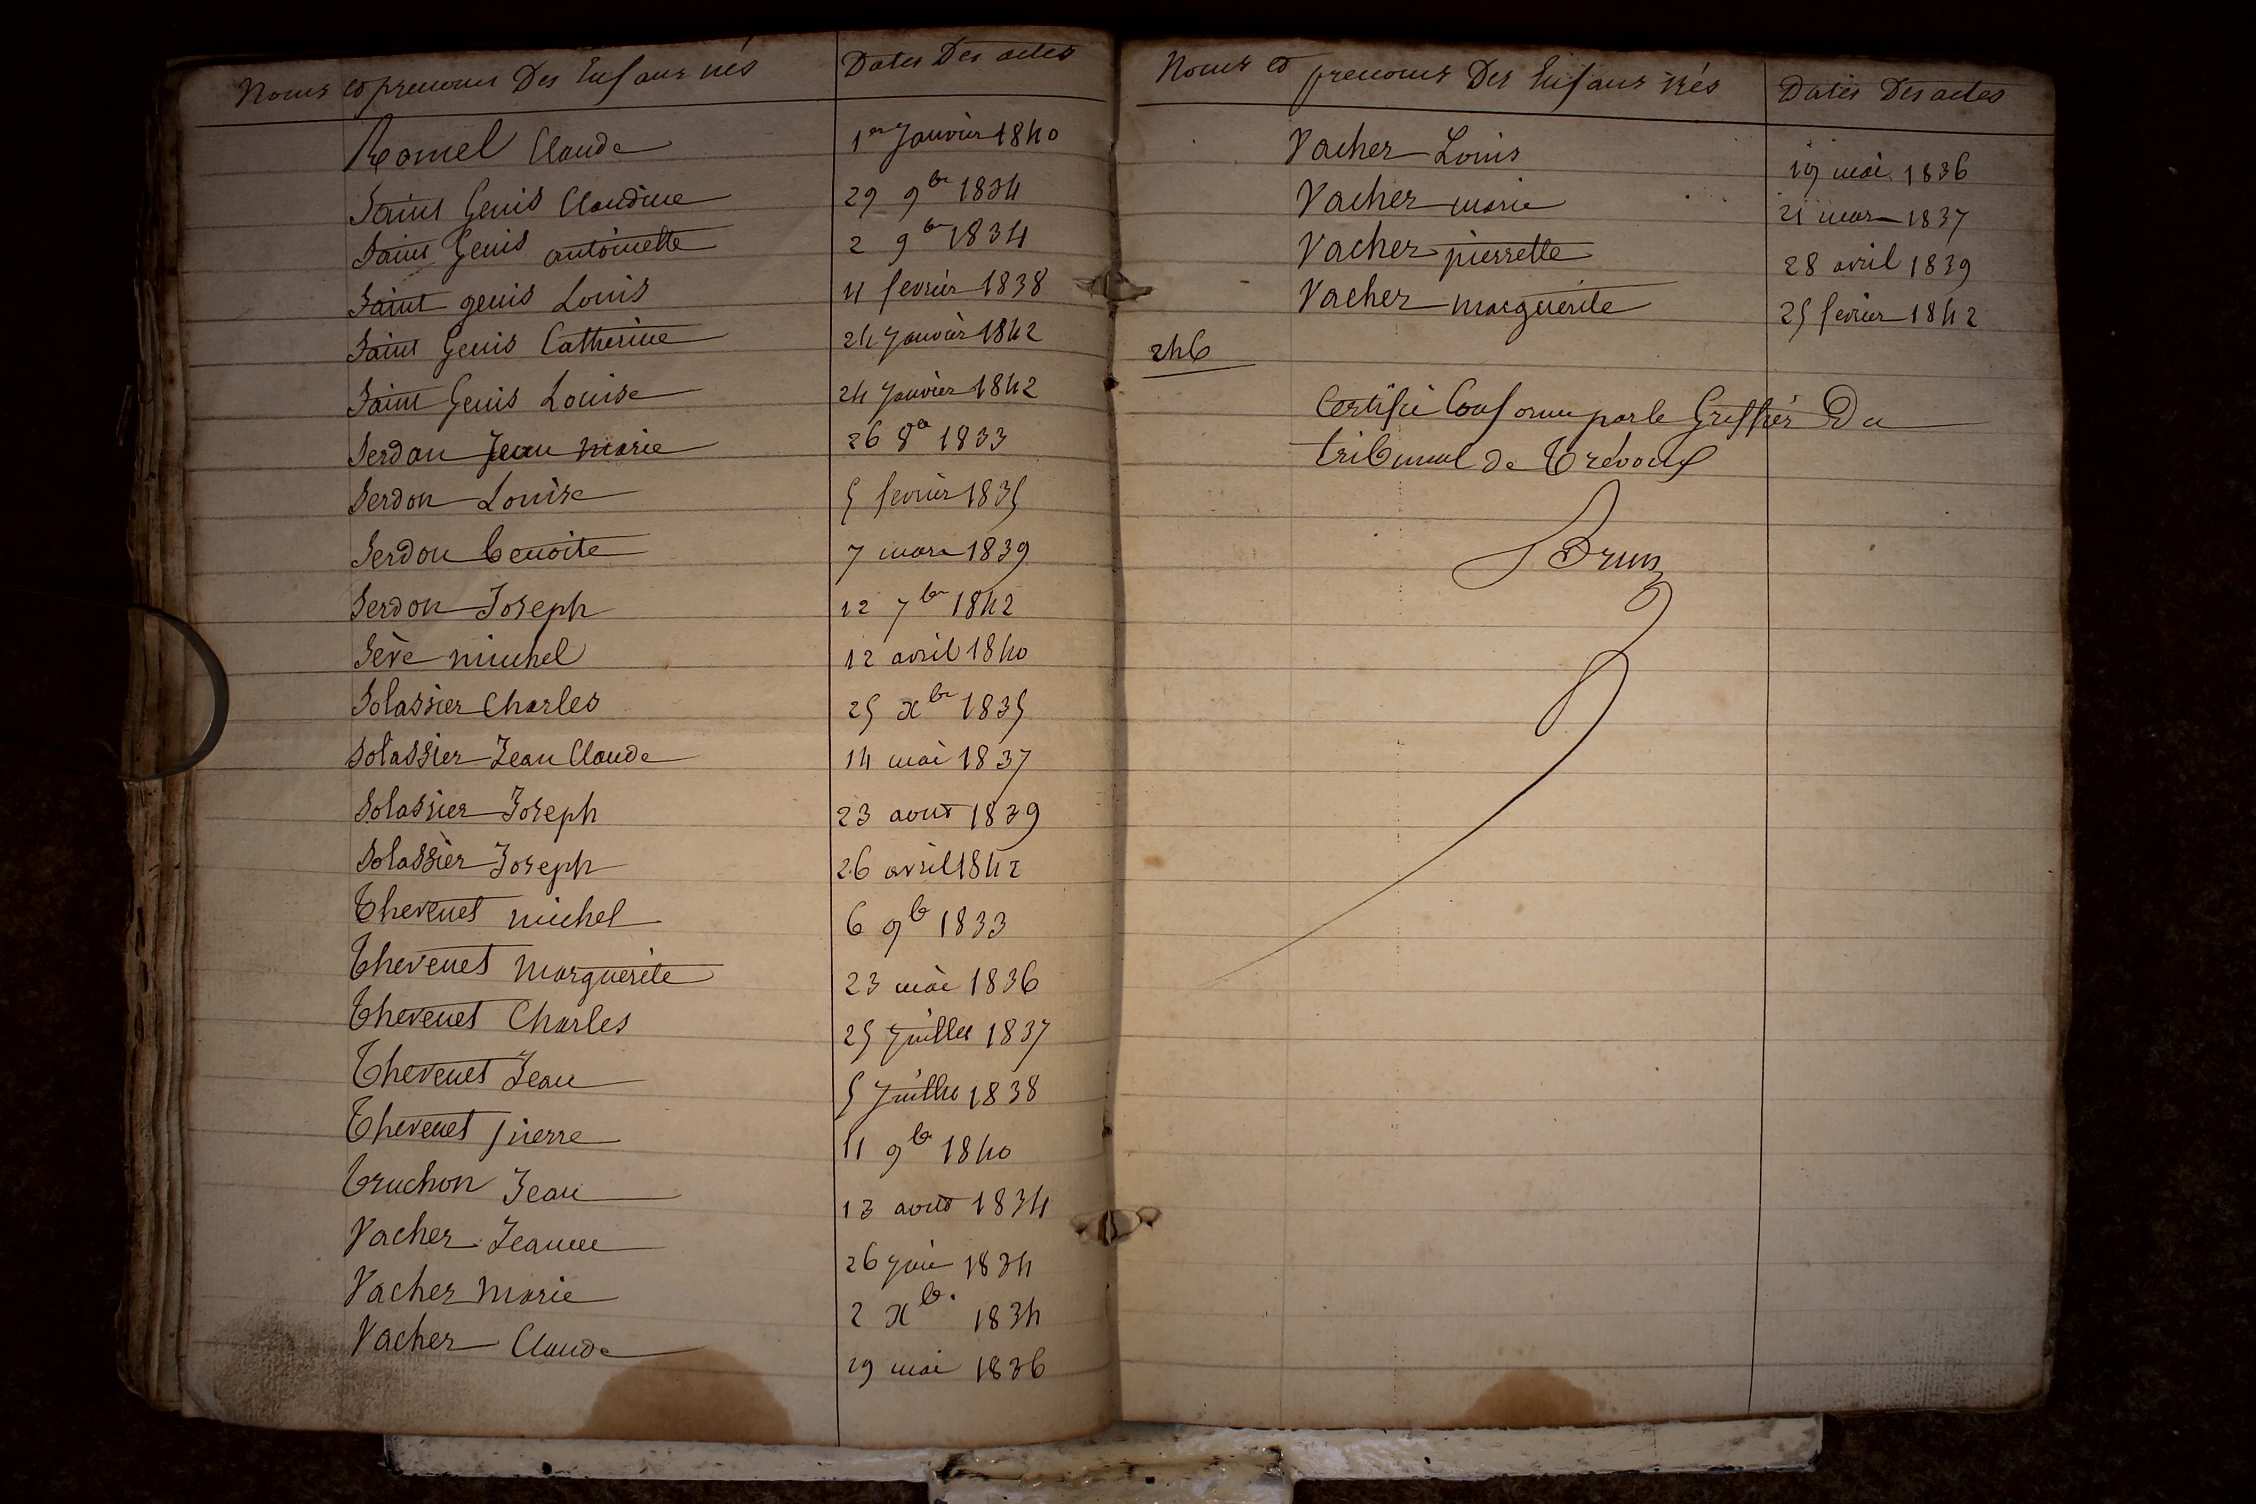 Noms et prenoms Des Enfans nés Dates Des actes
Ramel Claude 1er Janvier 1840
Saint Genis Claudine 29 9bre 1834
Saint Genis antoinette 2 9bre 1834
Saint genis Louis 4 fevrier 1838
Saint Genis Catherine 24 Janvier 1842
Saint Genis Louise 24 Janvier 1842
Serdon Jean Marie 26 8e 1833
Serdon Louise 5 fevrier 1835
Serdon benoite 7 mars 1839
Serdon Joseph 12 7bre 1842
Sève michel 12 avril 1840
Solassier Charles 25 xbre 1835
Solassier Jean Claude 14 mai 1837
Solassier Joseph 23 aout 1839
Solassier Joseph 26 avril 1842
Thevenet michel 6 9b 1833
Thevenet Marguerite 23 mai 1836
Thevenet Charles 25 Juillet 1837
Thevenet Jean 5 Juillet 1838
Thevenet pierre 11 9b 1840
Truchon Jean 13 aout 1834
Vacher Jeanne 26 Juin 1834
Vacher Marie 2 xb. 1834
Vacher Claude 19 mai 1836
Noms et prenoms Des Enfans nés Dates Des actes
Vacher Louis 19 mai 1836
Vacher marie 21 mars 1837
Vacher pierrette 28 avril 1839
Vacher Marguerite 25 fevrier 1842
246
Certifié Conforme par le Greffier Du
tribunal de Trévoux
Brun